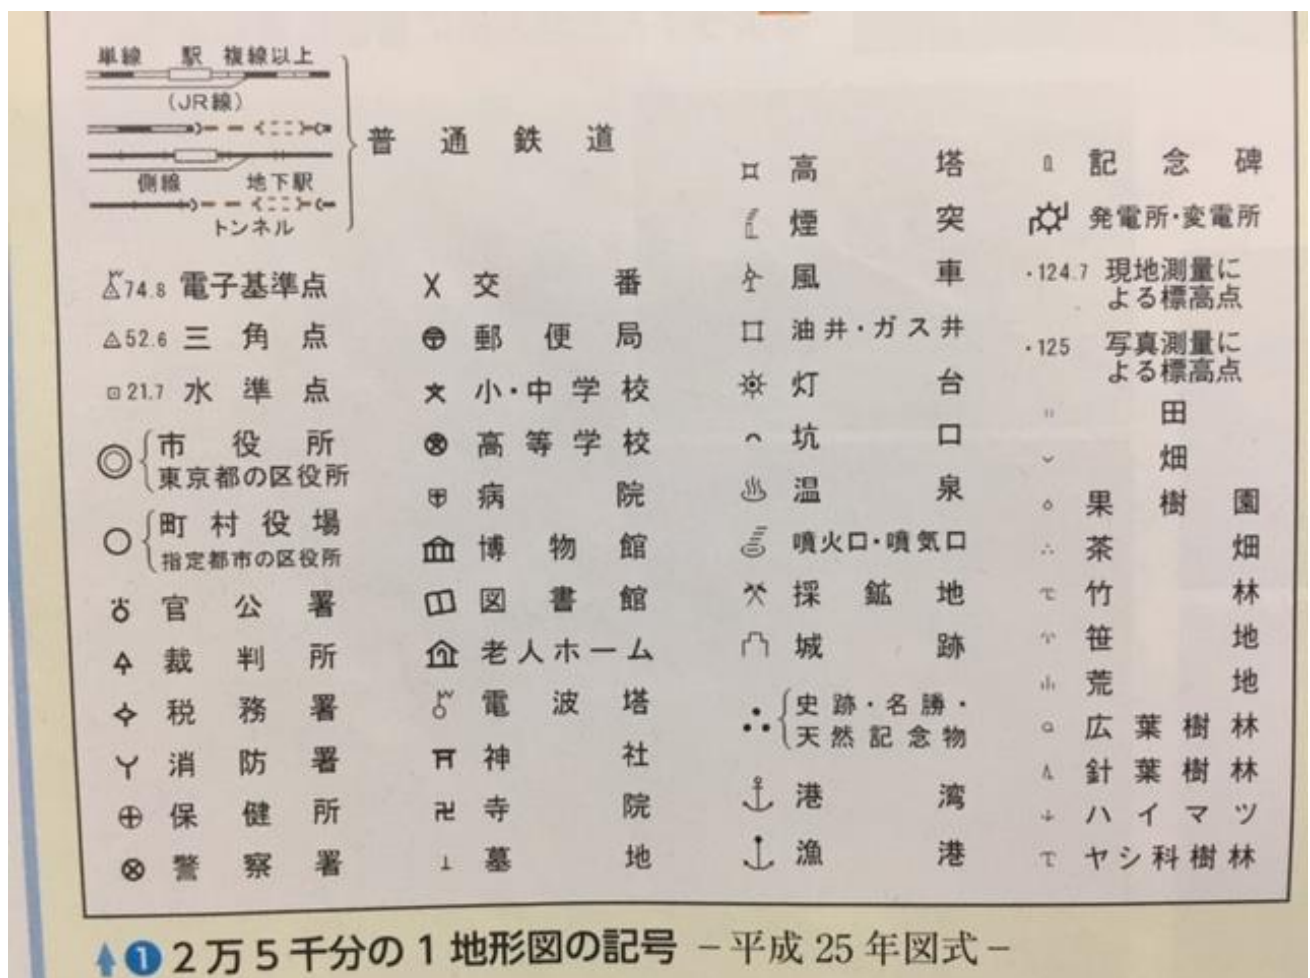 単線 駅 複線以上
(JR線)
側線 地下駅
トンネル
普通鉄道
74.8 電子基準点
52.6 三角点
21.7 水準点
市役所
東京都の区役所
町村役場
指定都市の区役所
官公署
裁判所
税務署
消防署
保健所
警察署
交番
郵便局
小・中学校
高等学校
病院
博物館
図書館
老人ホーム
電波塔
神社
寺院
墓地
高塔
煙突
風車
油井・ガス井
灯台
坑口
温泉
噴火口・噴気口
採鉱地
城跡
史跡・名勝・
天然記念物
港湾
漁港
記念碑
発電所・変電所
・124.7 現地測量に
よる標高点
・125 写真測量に
よる標高点
田
畑
果樹園
茶畑
竹林
笹地
荒地
広葉樹林
針葉樹林
ハイマツ
ヤシ科樹林
1 2万5千分の1地形図の記号 －平成25年図式－